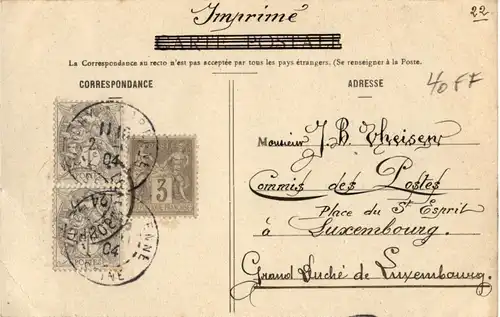 Imprimé
22
CARTE POSTALE
La Correspondance au recto n'est pas acceptée par tous les pays étrangers. (Se renseigner à la Poste.
CORRESPONDANCE
ADRESSE
40 FF
Monsieur J. B. Theisen
Commis des Postes
Place du St Esprit
à Luxembourg.
Grand Duché de Luxembourg.
3
04